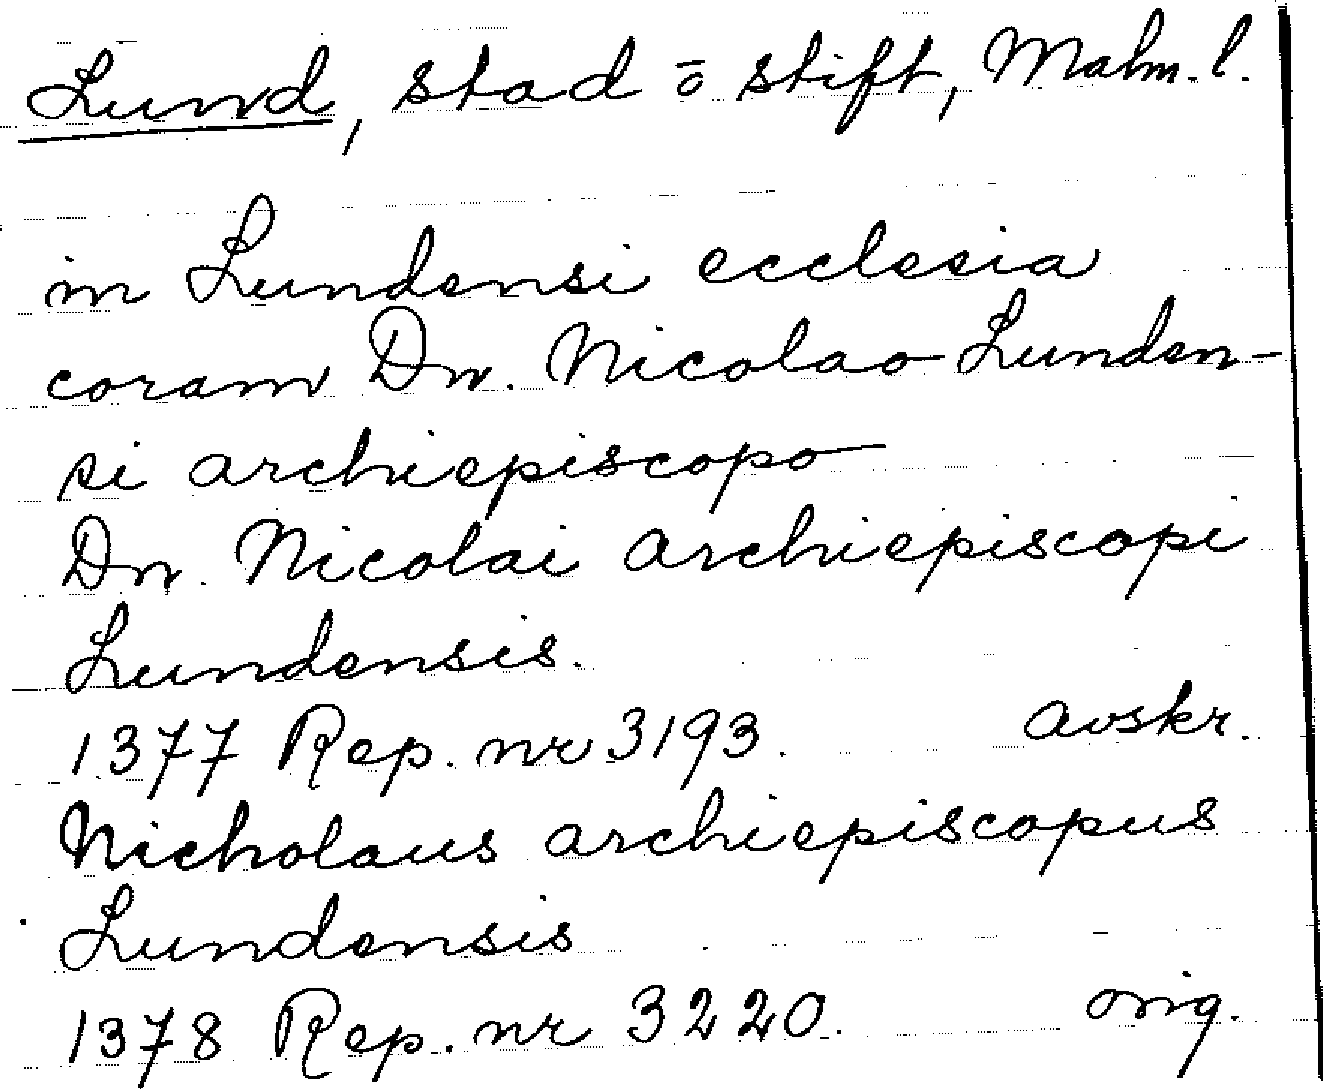 Lund, stad ō stift, Malm. l.
in Lundensi ecclesia
coram Dn. Nicolao Lunden-
si archiepiscopo
Dn. Nicolai archiepiscopi
Lundensis.
1377 Rep. nr 3193. avskr.
Nicholaus archiepiscopus
Lundensis
1378 Rep. nr 3220. orig.